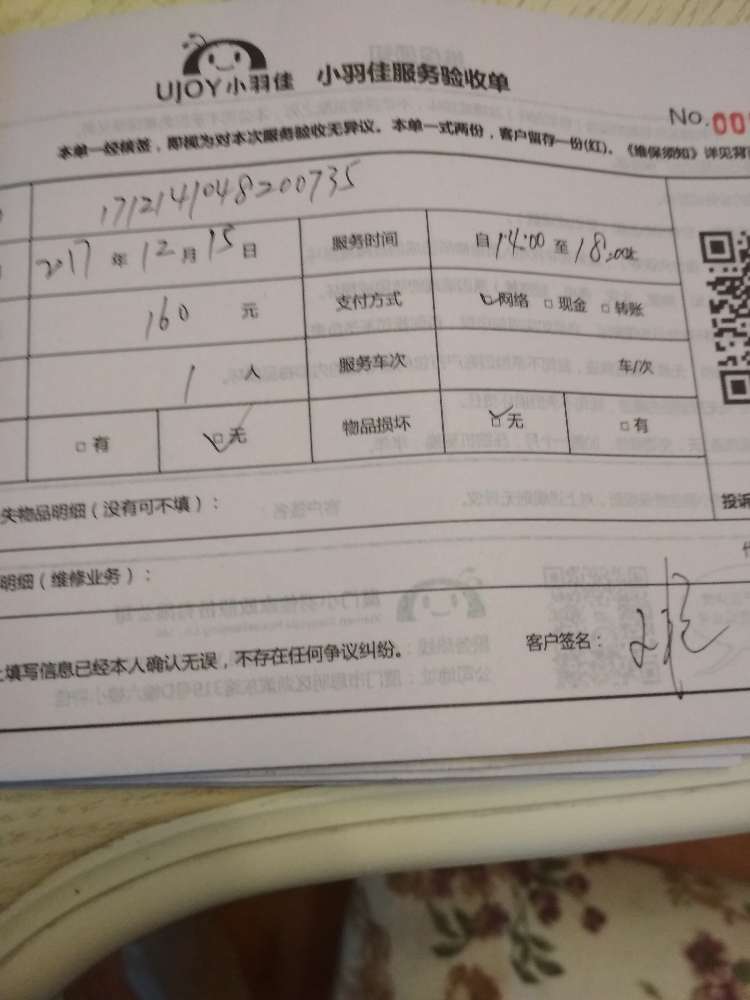 UJOY小羽佳 小羽佳服务验收单
No.00
本单一经核签，即视为对本次服务验收无异议。本单一式两份，客户留存一份(红)。《维保须知》详见背
1712141048200735
2017年12月15日 服务时间 自14:00至18:00止
160元 支付方式 □网络 □现金 □转账
1人 服务车次 车/次
□有 □无 物品损坏 □无 □有
失物品明细（没有可不填）：
投诉
明细（维修业务）：
上填写信息已经本人确认无误，不存在任何争议纠纷。 客户签名：